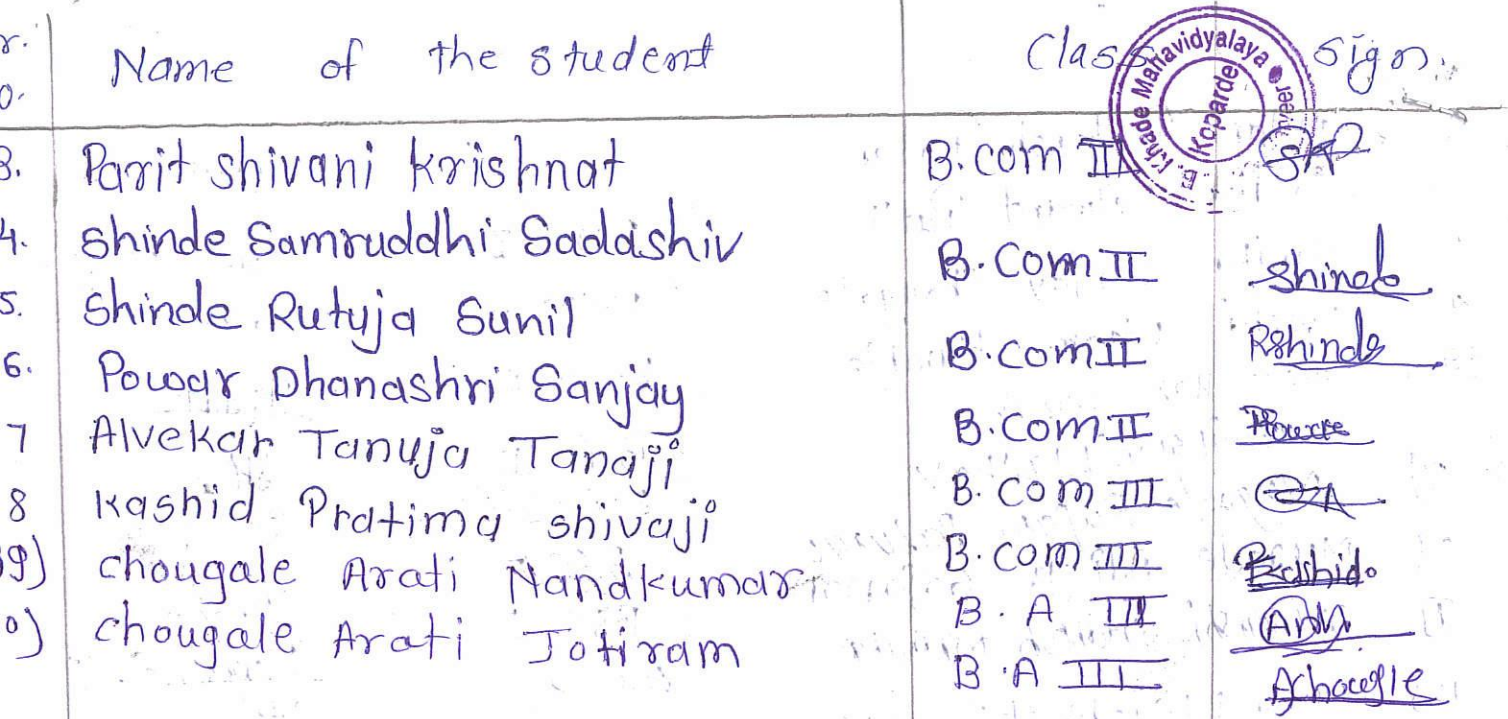 r. Name of the student Class Sign.
o.
3. Parit shivani krishnat B.com II SKP
4. Shinde Samruddhi Sadashiv B.Com II Shinde
5. Shinde Rutuja Sunil B.com II RShinde
6. Powar Dhanashri Sanjay B.com II
7 Alvekar Tanuja Tanaji B.com III
8 Kashid Pratima shivaji B.com III Kashid.
9) chougale Arati Nandkumar B.A III
0) chougale Arati Jotiram B.A III AChougle
Khade Mahavidyalaya
Koparde